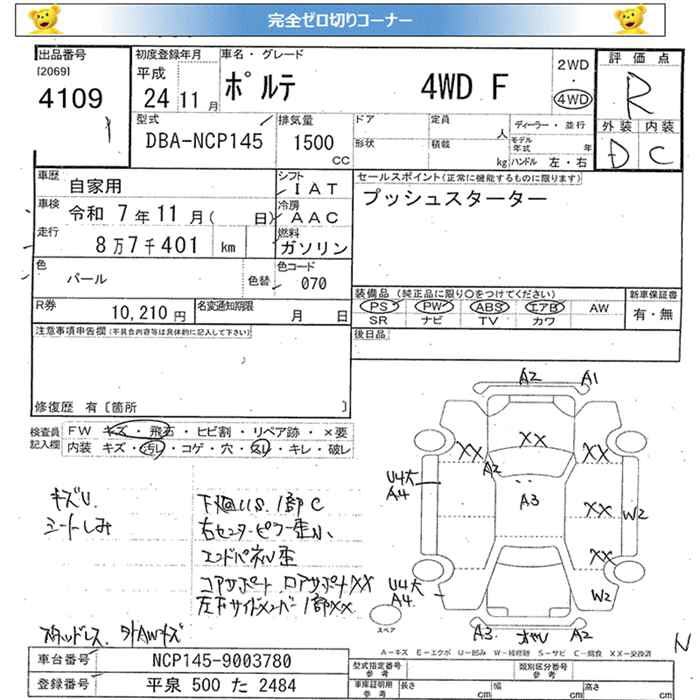 完全ゼロ切りコーナー
出品番号
[2069]
4109
初度登録年月
平成
24 11月
車名・グレード
ポルテ 4WD F
2WD
4WD
評価点
R
外装 内装
D C
型式
DBA-NCP145
排気量
1500
CC
ドア
形状
定員
人
積載
kg
ディーラー・並行
モデル
年式 年
ハンドル 左・右
車歴
自家用
シフト
IAT
車検
令和 7年11月( 日)
冷房
AAC
走行
8万7千401 km
燃料
ガソリン
色
パール
色替
色コード
070
R券
10,210円
名変通知期限
月 日
セールスポイント(正常に機能するものに限ります)
プッシュスターター
装備品(純正品に限り○をつけてください)
PS PW ABS エアB AW
SR ナビ TV カワ
新車保証書
有・無
後日品
注意事項申告欄(不具合内容等は具体的に記入して下さい)
修復歴 有[箇所 ]
検査員
記入欄
FW キズ・飛石・ヒビ割・リペア跡・×要
内装 キズ・汚し・コゲ・穴・気し・キレ・破レ
キズU
シートしみ
下廻US、1部C
右センターピラー歪小、
エンドパネル歪
コアサポート ロアサポートXX
左右サイドメンバー1部XX
スタッドレス 外AWキズ
A2 A1
XX XX XX
A2
U4大
A4
A3
XX W2
XX
U4大
A4
W2
スペア
A3 A2
N
A－キズ E－エクボ U－凹み W－補修跡 S－サビ C－腐食 XX－交換済
車台番号
NCP145-9003780
登録番号
平泉 500 た 2484
型式指定番号
参考
類別区分番号
参考
車庫証明用
参考
長さ cm
幅 cm
高さ cm